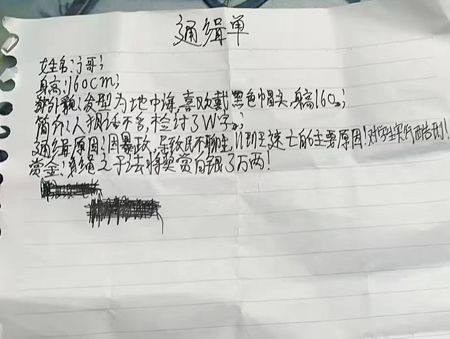 通缉单
姓名:j哥;
身高:160cm;
外貌:发型为地中海,喜欢戴黑色帽头,身高160。;
简介:人狠话不多,检讨了W字。;
通缉原因:因暴政,导致民不聊生,11班王速亡的主要原因!对学生实行酷刑!
赏金:系绳之于法将奖赏白银了万两!